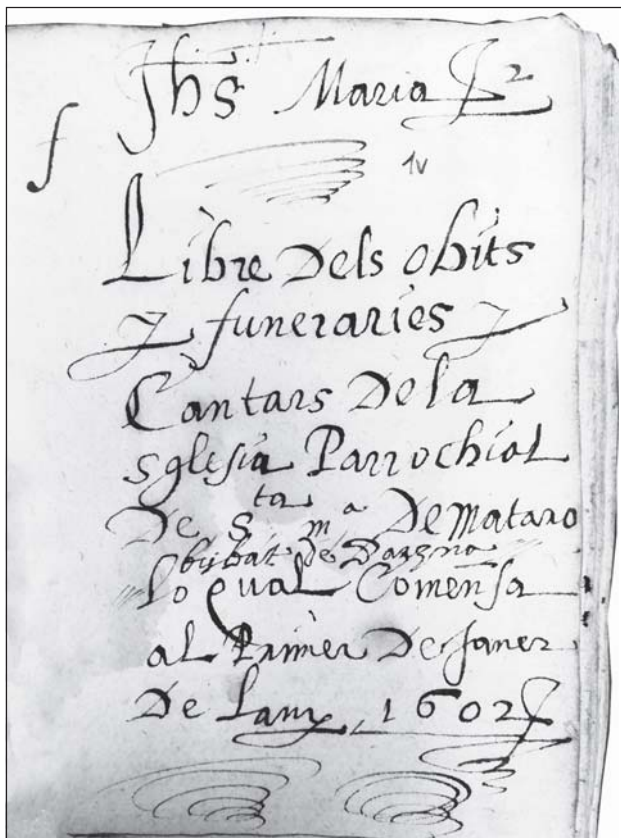 Jhs Maria
1v
Libre Dels obits
y funeraries y
Cantars De la
sglesia Parrochial
De sta ma De mataro
bisbat de Barsna
lo qual Comensa
al Primer De Janer
De Lany 1602